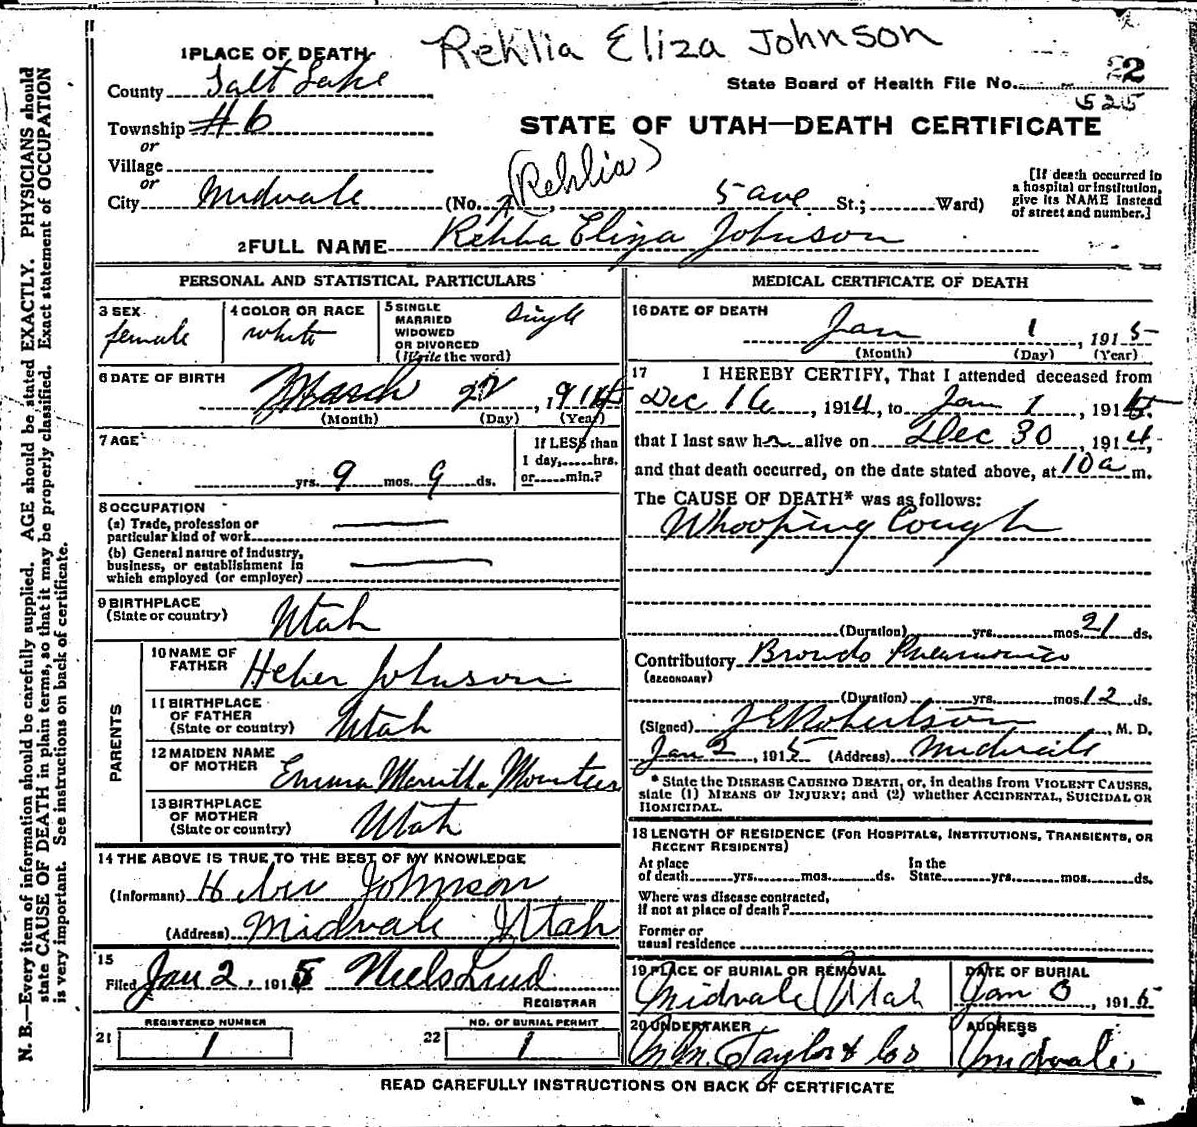 Rehlia Eliza Johnson
1 PLACE OF DEATH
State Board of Health File No. 22
525
County Salt Lake
Township #6
or
Village
or
City Midvale
STATE OF UTAH—DEATH CERTIFICATE
(Rehlia)
(No. 5 ave St.; Ward)
[If death occurred in
a hospital or institution,
give its NAME instead
of street and number.]
2 FULL NAME Rehlia Eliza Johnson
PERSONAL AND STATISTICAL PARTICULARS
3 SEX
female
4 COLOR OR RACE
white
5 SINGLE
MARRIED
WIDOWED
OR DIVORCED
(Write the word)
Single
6 DATE OF BIRTH
March 22, 1914
(Month) (Day) (Year)
7 AGE
yrs. 9 mos. 9 ds.
If LESS than
1 day,......hrs.
or......min.?
8 OCCUPATION
(a) Trade, profession or
particular kind of work
(b) General nature of industry,
business, or establishment in
which employed (or employer)
9 BIRTHPLACE
(State or country)
Utah
PARENTS
10 NAME OF
FATHER
Heber Johnson
11 BIRTHPLACE
OF FATHER
(State or country)
Utah
12 MAIDEN NAME
OF MOTHER
Emma
13 BIRTHPLACE
OF MOTHER
(State or country)
Utah
14 THE ABOVE IS TRUE TO THE BEST OF MY KNOWLEDGE
(Informant) Heber Johnson
(Address) Midvale Utah
15
Filed Jan 2, 1915 Niels Lind
REGISTRAR
21 REGISTERED NUMBER
1
22 NO. OF BURIAL PERMIT
1
MEDICAL CERTIFICATE OF DEATH
16 DATE OF DEATH
Jan 1, 1915
(Month) (Day) (Year)
17 I HEREBY CERTIFY, That I attended deceased from
Dec 16, 1914, to Jan 1, 1915.
that I last saw her alive on Dec 30 1914,
and that death occurred, on the date stated above, at 10 a m.
The CAUSE OF DEATH* was as follows:
Whooping Cough
(Duration) yrs. mos. 21 ds.
Contributory Broncho Pneumonia
(SECONDARY)
(Duration) yrs. mos. 12 ds.
(Signed) J E Robertson, M. D.
Jan 2, 1915 (Address) Midvale
* State the DISEASE CAUSING DEATH, or, in deaths from VIOLENT CAUSES,
state (1) MEANS OF INJURY; and (2) whether ACCIDENTAL, SUICIDAL OR
HOMICIDAL.
18 LENGTH OF RESIDENCE (FOR HOSPITALS, INSTITUTIONS, TRANSIENTS, OR
RECENT RESIDENTS)
At place
of death yrs. mos. ds.
In the
State yrs. mos. ds.
Where was disease contracted,
if not at place of death?
Former or
usual residence
19 PLACE OF BURIAL OR REMOVAL
Midvale Utah
DATE OF BURIAL
Jan 1915
20 UNDERTAKER
Taylor & Co
ADDRESS
Midvale.
READ CAREFULLY INSTRUCTIONS ON BACK OF CERTIFICATE
N. B.—Every item of information should be carefully supplied. AGE should be stated EXACTLY. PHYSICIANS should
state CAUSE OF DEATH in plain terms, so that it may be properly classified. Exact statement of OCCUPATION
is very important. See instructions on back of certificate.